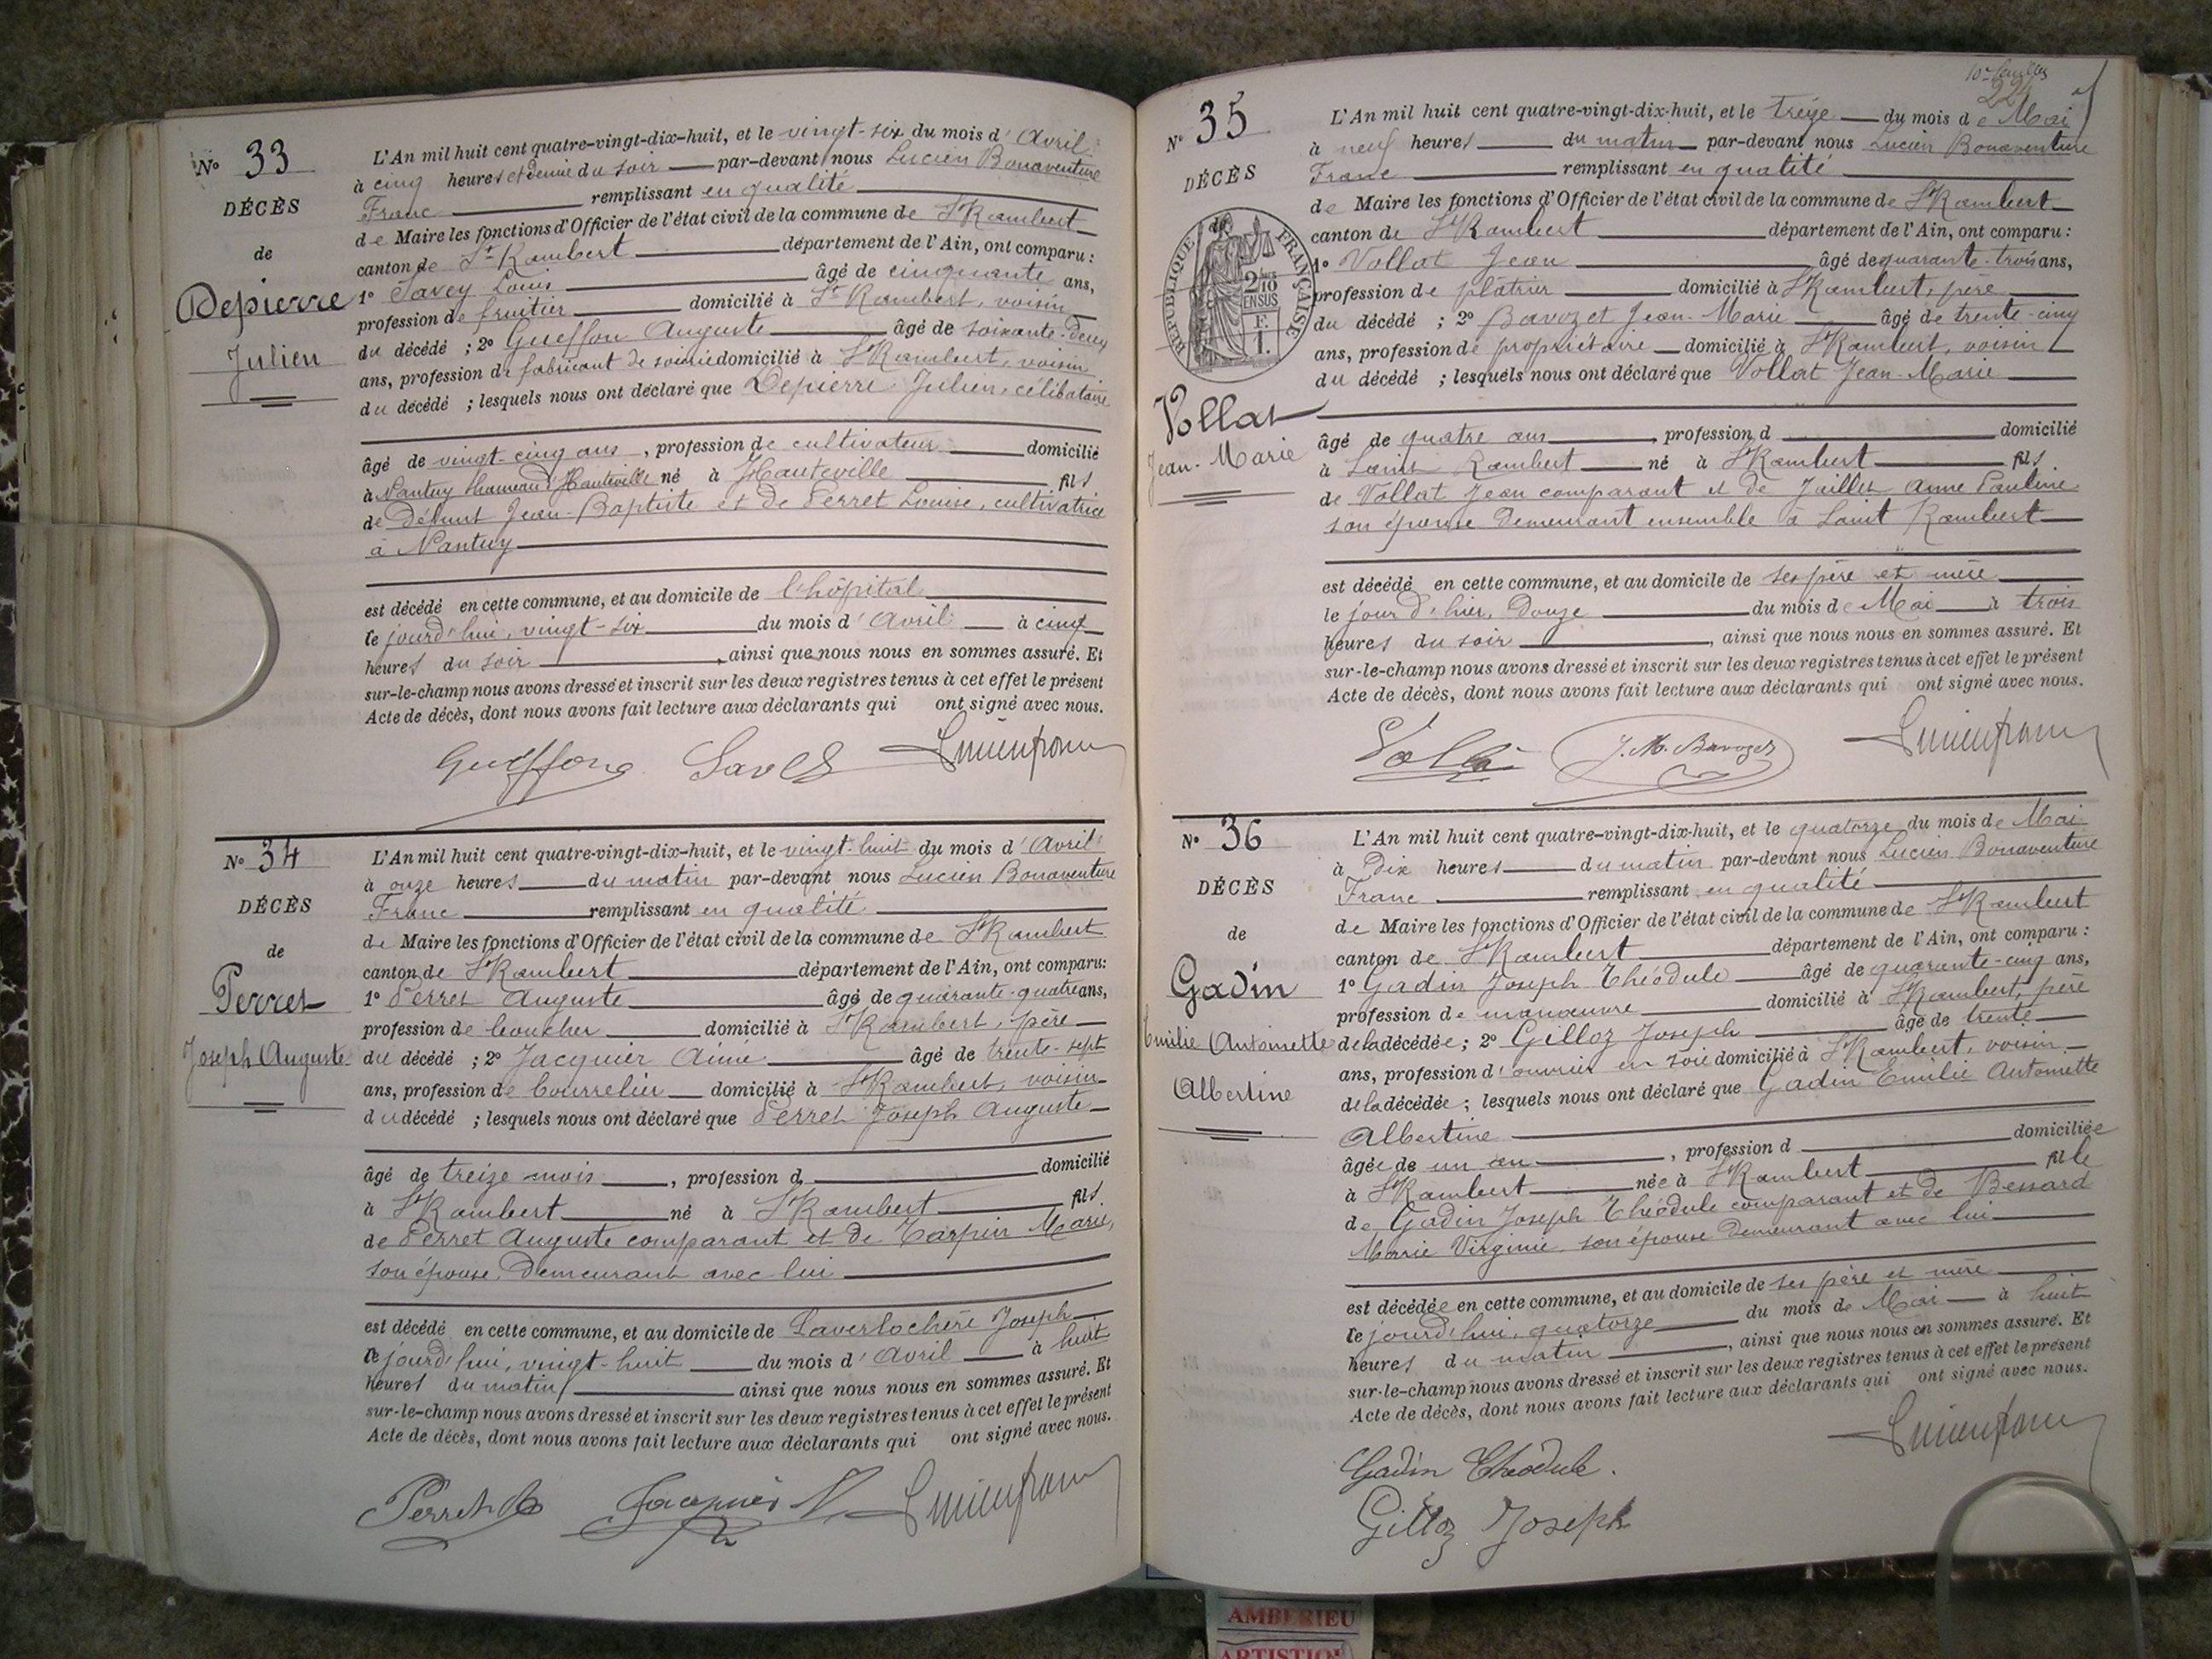 N° 33
DÉCÈS
de
Depierre
Julien
L'An mil huit cent quatre-vingt-dix-huit, et le vingt-six du mois d'Avril
à cinq heures et demie du soir par-devant nous Lucien Bonaventure
Franc remplissant en qualité
de Maire les fonctions d'Officier de l'état civil de la commune de St Rambert
canton de St Rambert département de l'Ain, ont comparu :
1° Savey Louis âgé de cinquante ans,
profession de fruitier domicilié à St Rambert, voisin
du décédé ; 2° Gueffon Auguste âgé de soixante-deux
ans, profession de fabricant de soierie domicilié à St Rambert, voisin
du décédé ; lesquels nous ont déclaré que Depierre Julien, célibataire
âgé de vingt-cinq ans, profession de cultivateur domicilié
à Nantuy hameau d'Hauteville né à Hauteville fils
de défunt Jean-Baptiste et de Perret Louise, cultivatrice
à Nantuy
est décédé en cette commune, et au domicile de l'hôpital
le jourd'hui, vingt-six du mois d'Avril à cinq
heures du soir, ainsi que nous nous en sommes assuré. Et
sur-le-champ nous avons dressé et inscrit sur les deux registres tenus à cet effet le présent
Acte de décès, dont nous avons fait lecture aux déclarants qui ont signé avec nous.
Gueffon Savey
N° 34
DÉCÈS
de
Perret
Joseph Auguste
L'An mil huit cent quatre-vingt-dix-huit, et le vingt-huit du mois d'Avril
à onze heures du matin par-devant nous Lucien Bonaventure
Franc remplissant en qualité
de Maire les fonctions d'Officier de l'état civil de la commune de St Rambert
canton de St Rambert département de l'Ain, ont comparu:
1° Perret Auguste âgé de quarante-quatre ans,
profession de boucher domicilié à St Rambert, père
du décédé ; 2° Jacquier Aimé âgé de trente-sept
ans, profession de bourrelier domicilié à St Rambert, voisin
du décédé ; lesquels nous ont déclaré que Perret Joseph Auguste
âgé de treize mois, profession d domicilié
à St Rambert né à St Rambert fils
de Perret Auguste comparant et de Tarpin Marie,
son épouse, demeurant avec lui
est décédé en cette commune, et au domicile de Laverlochère Joseph
le jourd'hui, vingt-huit du mois d'Avril à huit
heures du matin ainsi que nous nous en sommes assuré. Et
sur-le-champ nous avons dressé et inscrit sur les deux registres tenus à cet effet le présent
Acte de décès, dont nous avons fait lecture aux déclarants qui ont signé avec nous.
Perret Jacquier
N° 35
DÉCÈS
de
RÉPUBLIQUE FRANÇAISE
2/10
EN SUS
F.
1.
Vollat
Jean-Marie
L'An mil huit cent quatre-vingt-dix-huit, et le treize du mois de Mai
à neuf heures du matin par-devant nous Lucien Bonaventure
Franc remplissant en qualité
de Maire les fonctions d'Officier de l'état civil de la commune de St Rambert
canton de St Rambert département de l'Ain, ont comparu :
1° Vollat Jean âgé de quarante-trois ans,
profession de plâtrier domicilié à St Rambert, père
du décédé ; 2° Bavozet Jean-Marie âgé de trente-cinq
ans, profession de propriétaire domicilié à St Rambert, voisin
du décédé ; lesquels nous ont déclaré que Vollat Jean-Marie
âgé de quatre ans, profession d domicilié
à Saint Rambert né à St Rambert fils
de Vollat Jean comparant et de Jaillet Anne Pauline
son épouse demeurant ensemble à Saint Rambert
est décédé en cette commune, et au domicile de ses père et mère
le jour d'hier, douze du mois de Mai à trois
heures du soir, ainsi que nous nous en sommes assuré. Et
sur-le-champ nous avons dressé et inscrit sur les deux registres tenus à cet effet le présent
Acte de décès, dont nous avons fait lecture aux déclarants qui ont signé avec nous.
J. M. Bavozet
N° 36
DÉCÈS
de
Gadin
Emilie Antoinette
Albertine
L'An mil huit cent quatre-vingt-dix-huit, et le quatorze du mois de Mai
à dix heures du matin par-devant nous Lucien Bonaventure
Franc remplissant en qualité
de Maire les fonctions d'Officier de l'état civil de la commune de St Rambert
canton de St Rambert département de l'Ain, ont comparu :
1° Gadin Joseph Théodule âgé de quarante-cinq ans,
profession de manœuvre domicilié à St Rambert, père
de la décédée ; 2° Gilloz Joseph âgé de trente
ans, profession d'ouvrier en soie domicilié à St Rambert, voisin
de la décédée ; lesquels nous ont déclaré que Gadin Emilie Antoinette
Albertine
âgée de un an, profession d domiciliée
à St Rambert née à St Rambert fille
de Gadin Joseph Théodule comparant et de Bessard
Marie Virginie son épouse demeurant avec lui
est décédée en cette commune, et au domicile de ses père et mère
le jourd'hui, quatorze du mois de Mai à huit
heures du matin, ainsi que nous nous en sommes assuré. Et
sur-le-champ nous avons dressé et inscrit sur les deux registres tenus à cet effet le présent
Acte de décès, dont nous avons fait lecture aux déclarants qui ont signé avec nous.
Gadin Théodule.
Gilloz Joseph
AMBERIEU